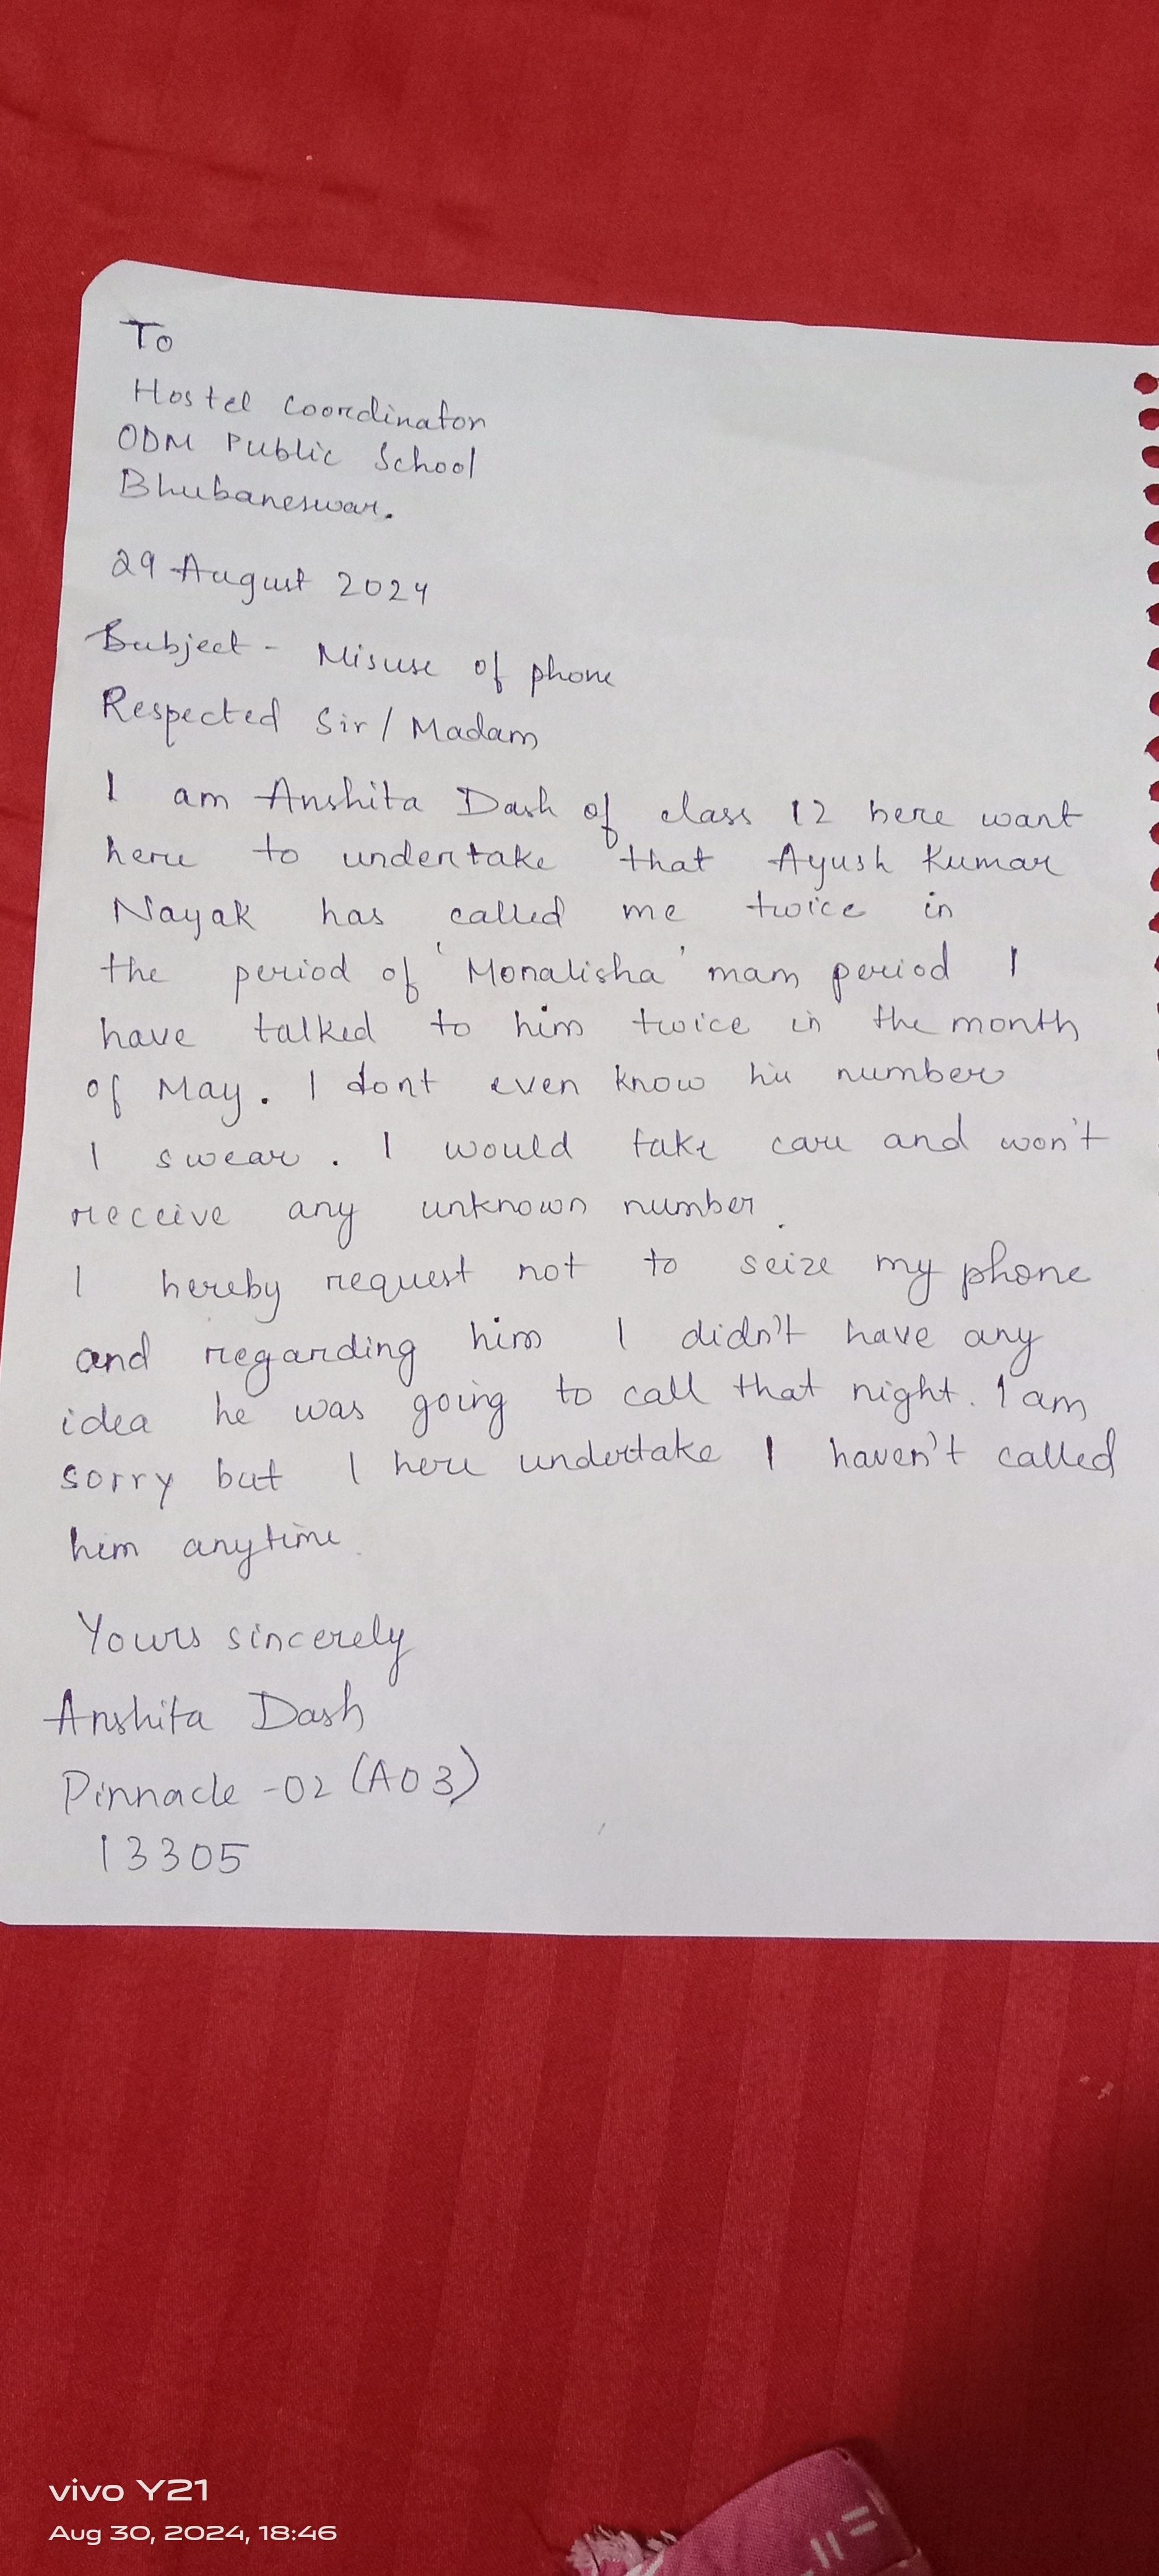 To
Hostel Coordinator
ODM Public School
Bhubaneswar.
29 August 2024
Subject - Misuse of phone
Respected Sir / Madam
I am Anshita Dash of class 12 here want
here to undertake that Ayush Kumar
Nayak has called me twice in
the period of 'Monalisha' mam period I
have talked to him twice in the month
of May. I dont even know his number
I swear. I would take care and won't
receive any unknown number.
I hereby request not to seize my phone
and regarding him I didn't have any
idea he was going to call that night. I am
sorry but I here undertake I haven't called
him anytime.
Yours sincerely
Anshita Dash
Pinnacle - 02 (A03)
13305
vivo Y21
Aug 30, 2024, 18:46